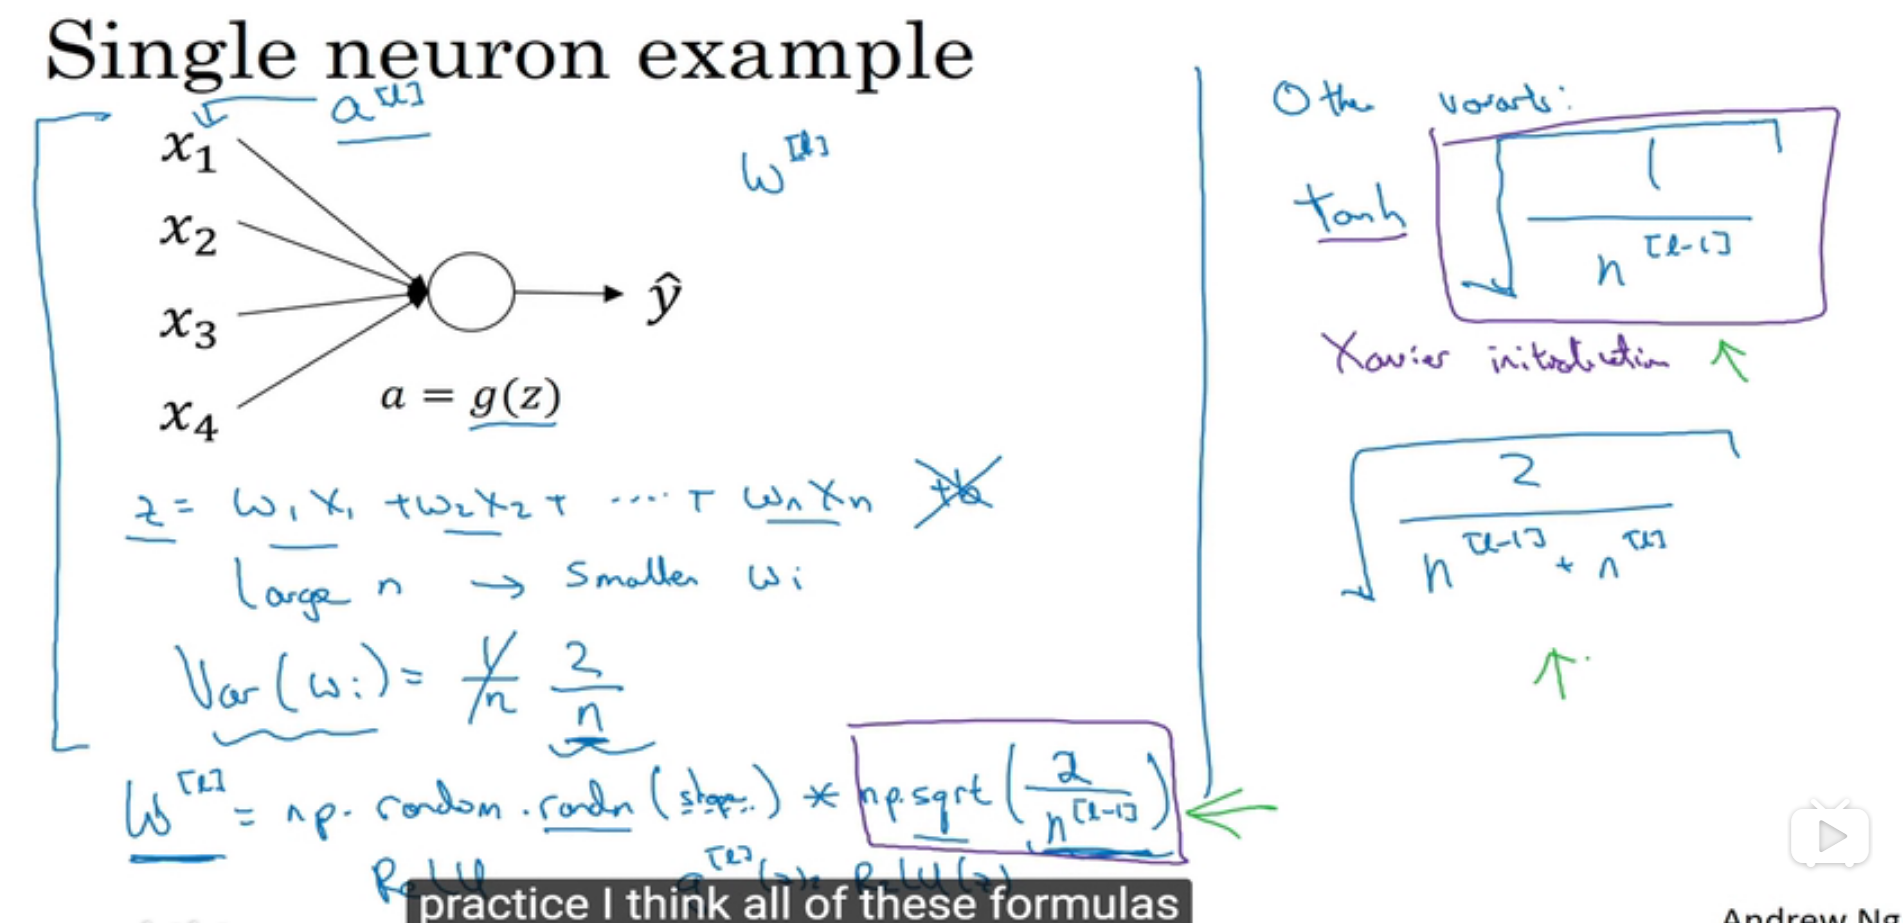 Single neuron example
a^[l]
x₁
x₂
x₃
x₄
ŷ
a = g(z)
w^[l]
z = w₁x₁ + w₂x₂ + ..... + wₙxₙ +b
Large n → Smaller wᵢ
Var(wᵢ) = 1/n 2/n
W^[l] = np.random.randn(shape) * np.sqrt(2/n^[l-1])
ReLU g^[l](z) = ReLU(z)
Other variants:
tanh √(1/n^[l-1])
Xavier initialization ↑
√(2/(n^[l-1] + n^[l]))
↑
practice I think all of these formulas
Andrew Ng